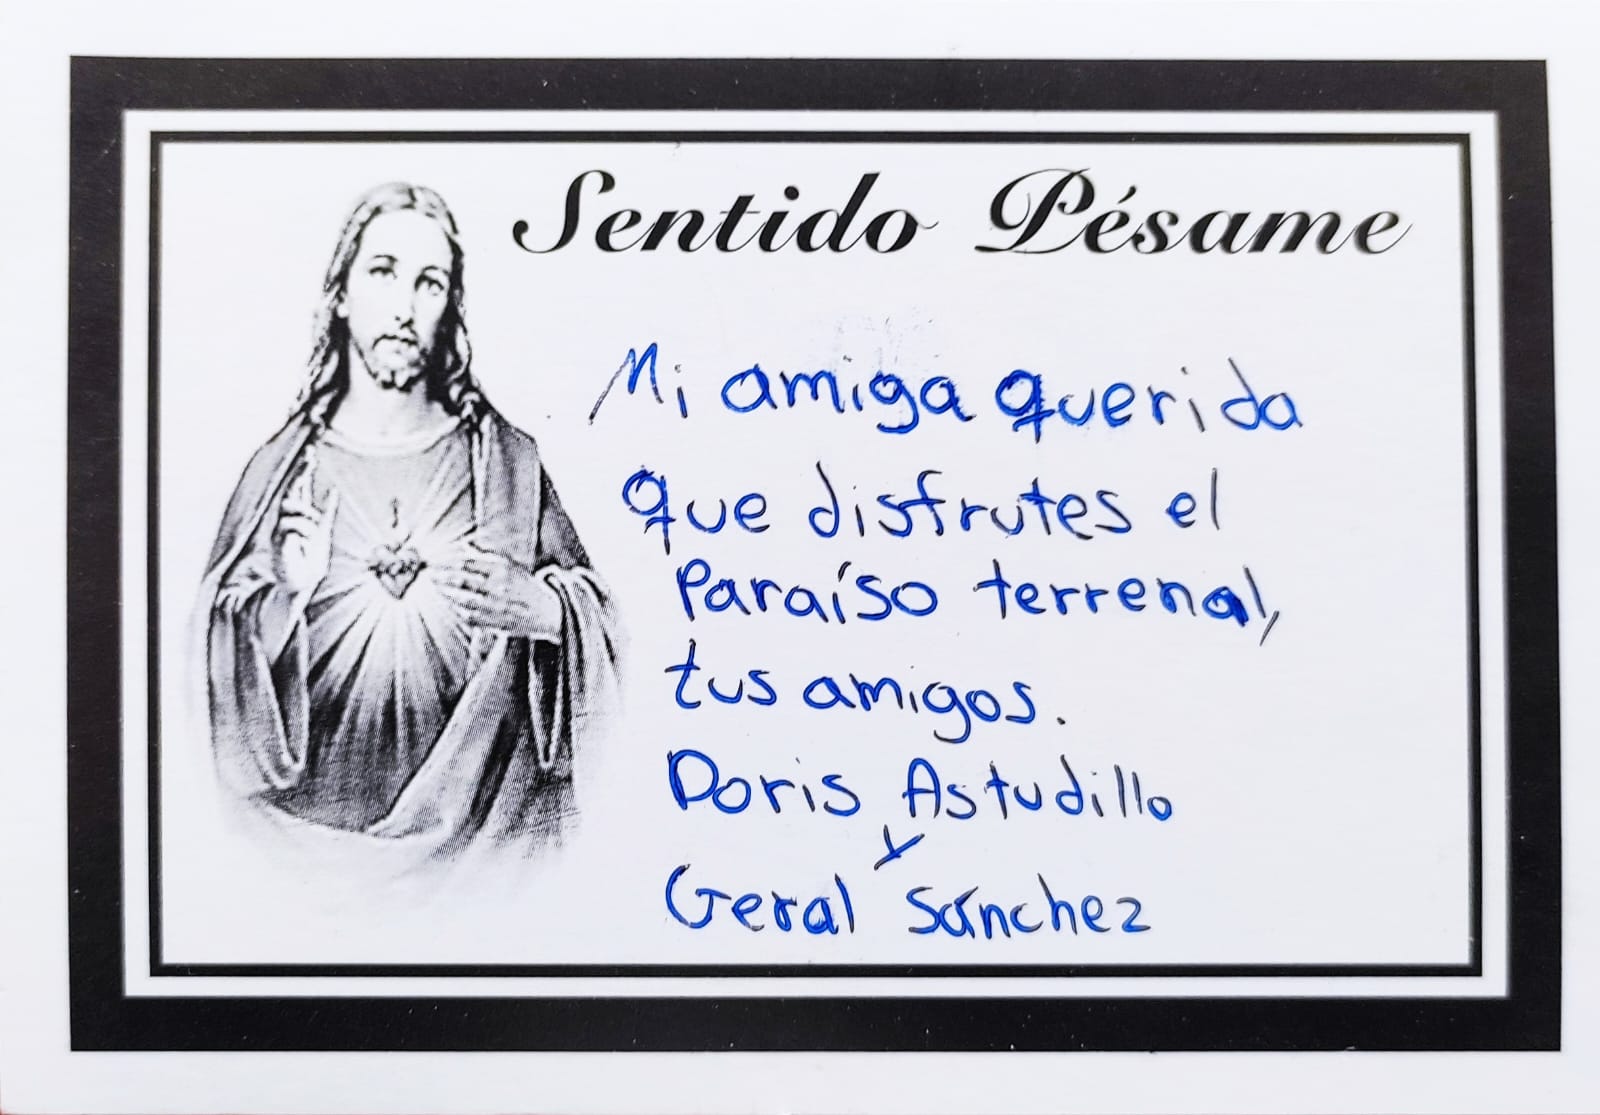 Sentido Pésame
Mi amiga querida
que disfrutes el
Paraíso terrenal,
tus amigos.
Doris Astudillo
y
Geral Sánchez